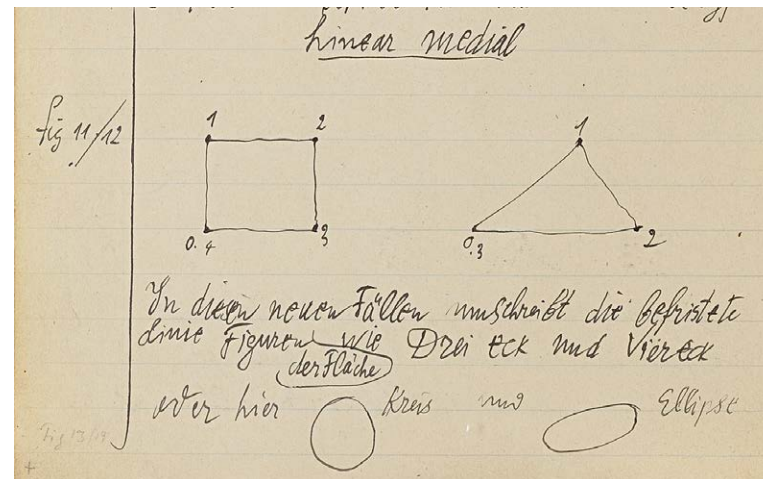 Linear medial
Fig 11/12
1 2
1
0. 4 3
0. 3 2
In diesen neuen Fällen umschreibt die befristete
Linie Figuren wie Drei eck und Viereck
der Fläche
oder hier Kreis und Ellipse
Fig 13/14
+